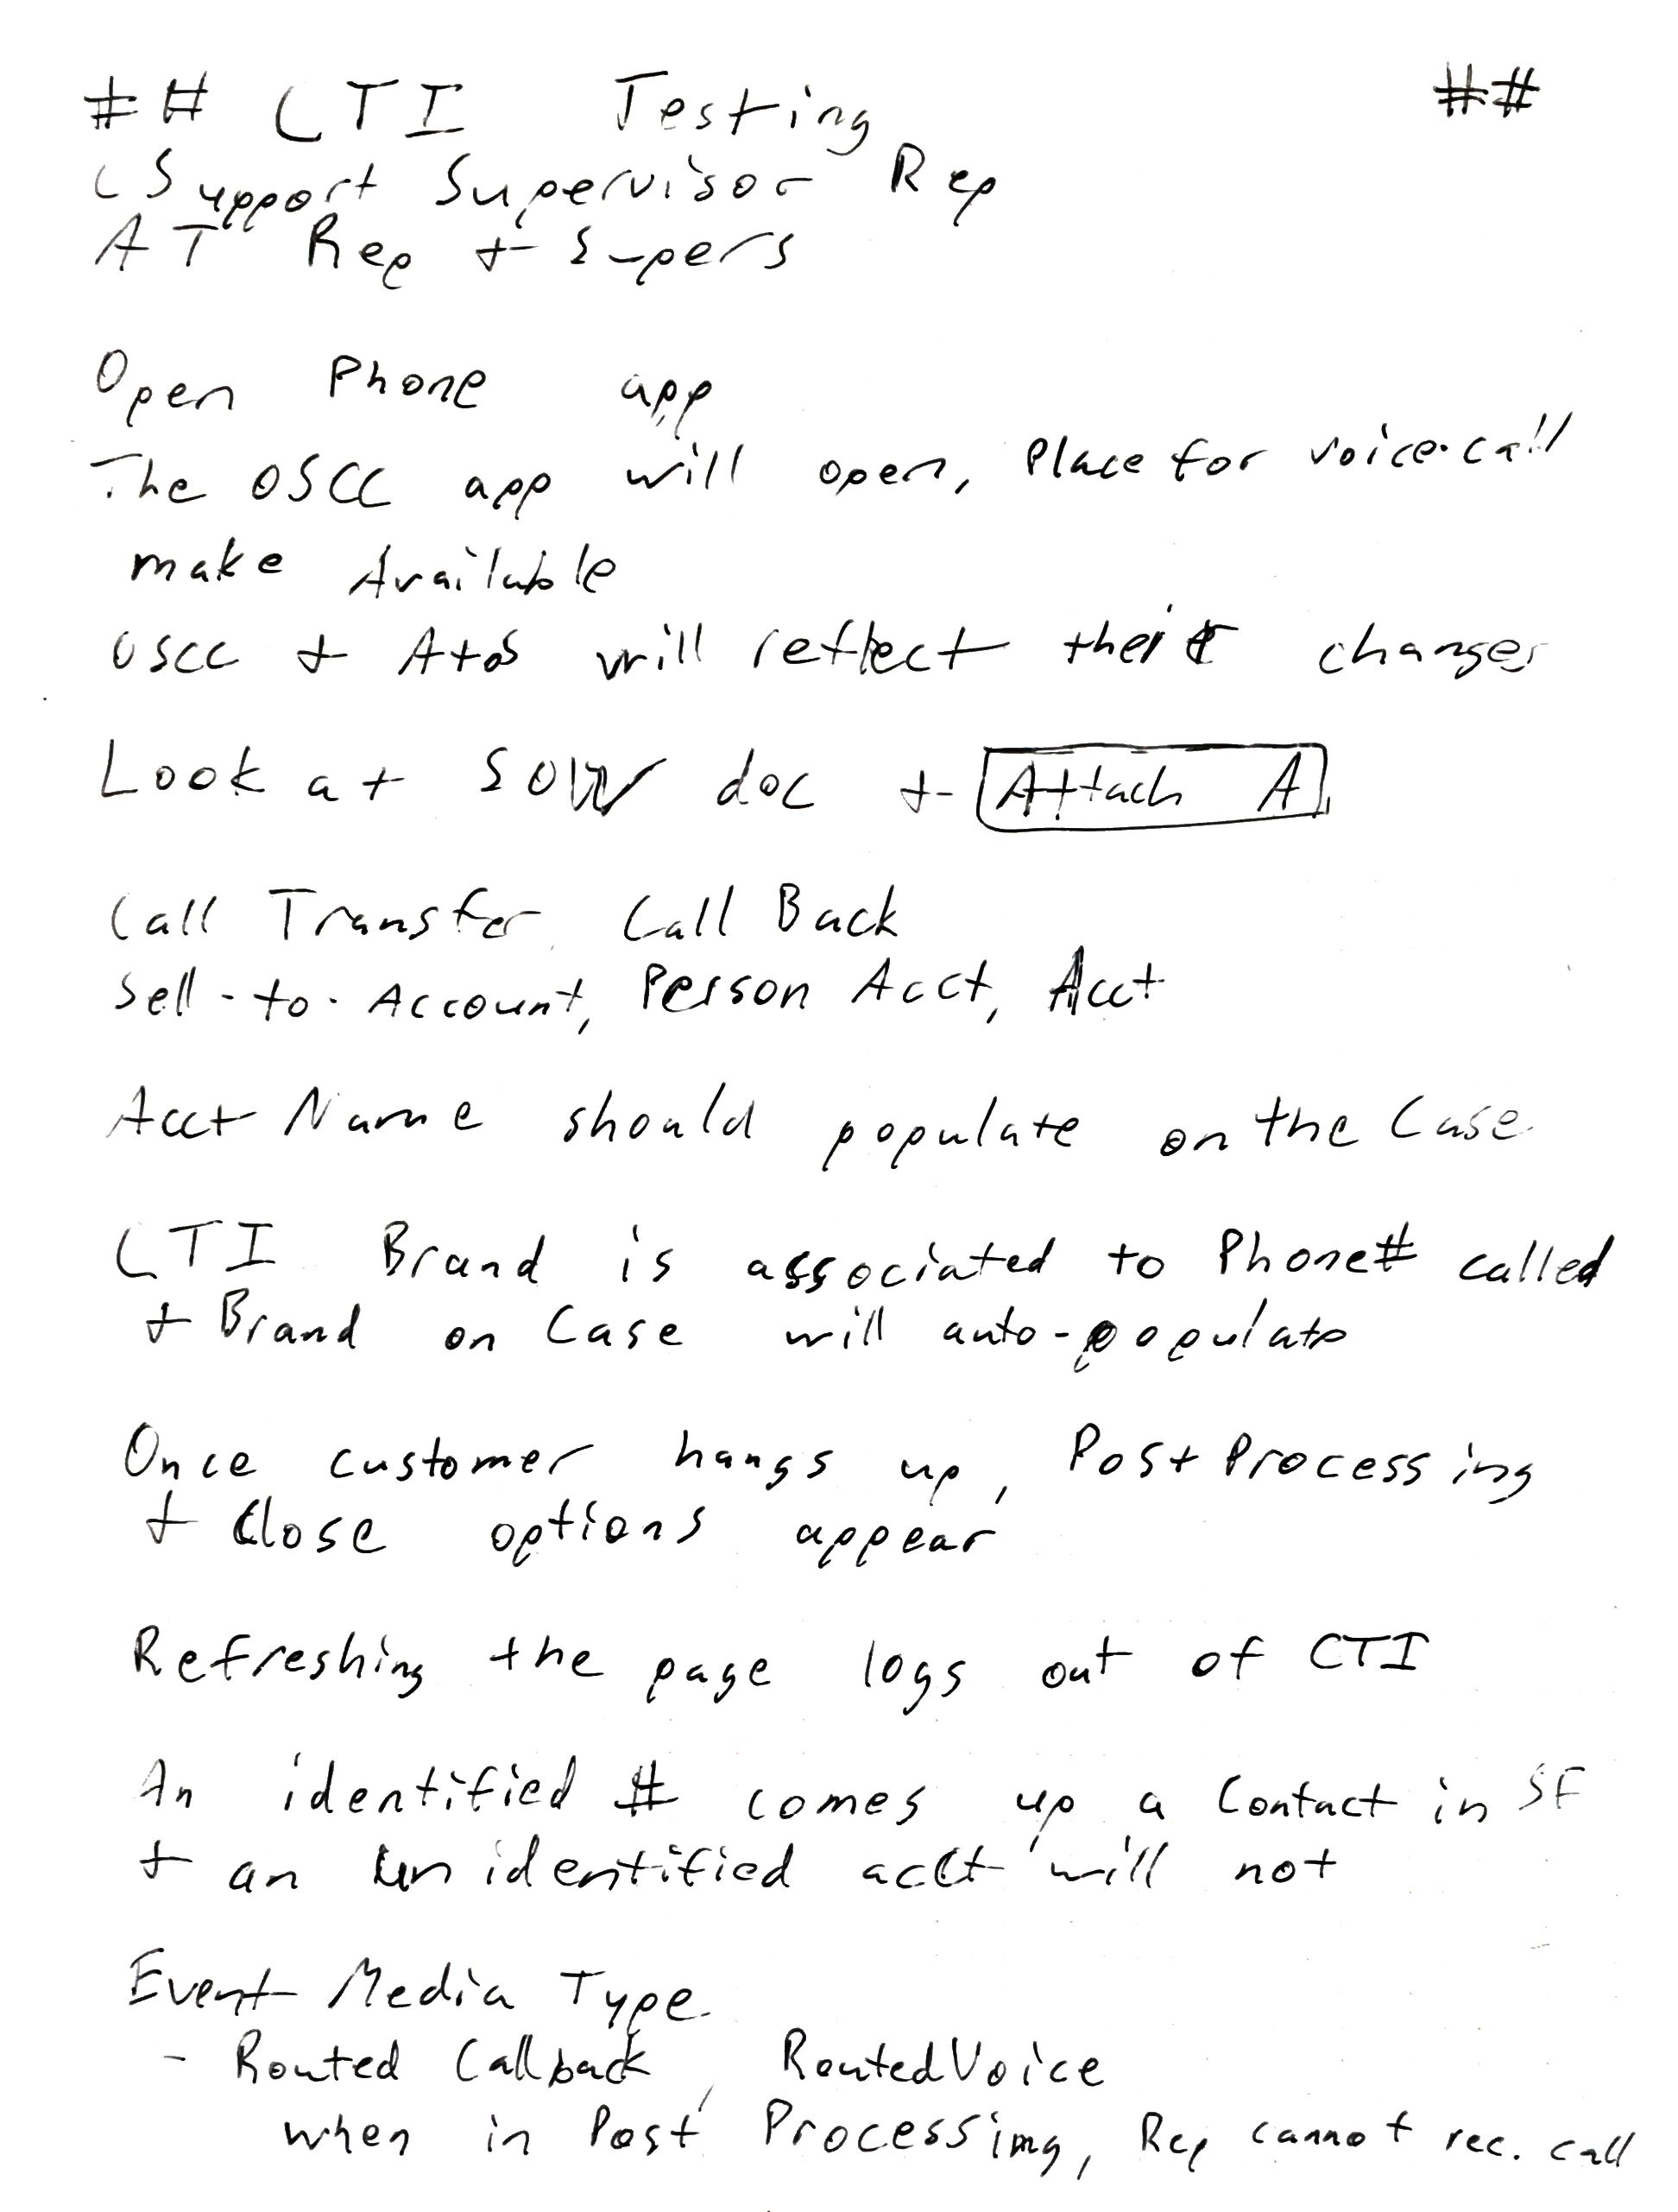 ## CTI Testing ##
CSupport Supervisor Rep
AT Rep + Supers
Open Phone app
The OSCC app will open, Place for voice-call
make Available
OSCC + Atos will reflect their changes
Look at SOW doc + Attach A
Call Transfer, Call Back
Sell-to-Account, Person Acct, Acct
Acct Name should populate on the Case
CTI Brand is associated to Phone# called
+ Brand on Case will auto-populate
Once customer hangs up, Post Processing
+ Close options appear
Refreshing the page logs out of CTI
An identified # comes up a Contact in SF
+ an unidentified acct will not
Event Media Type
- Routed Callback, RoutedVoice
when in Post Processing, Rep cannot rec. call